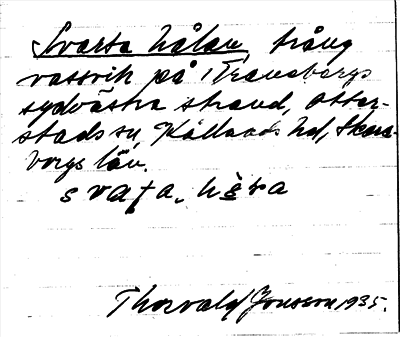 Svarta hålan, trång
vassvik på Traneborgs
sydvästra strand, Otter-
stads sn, Kållands hd, Skara-
borgs län.
Thorvald Jonsson 1935.